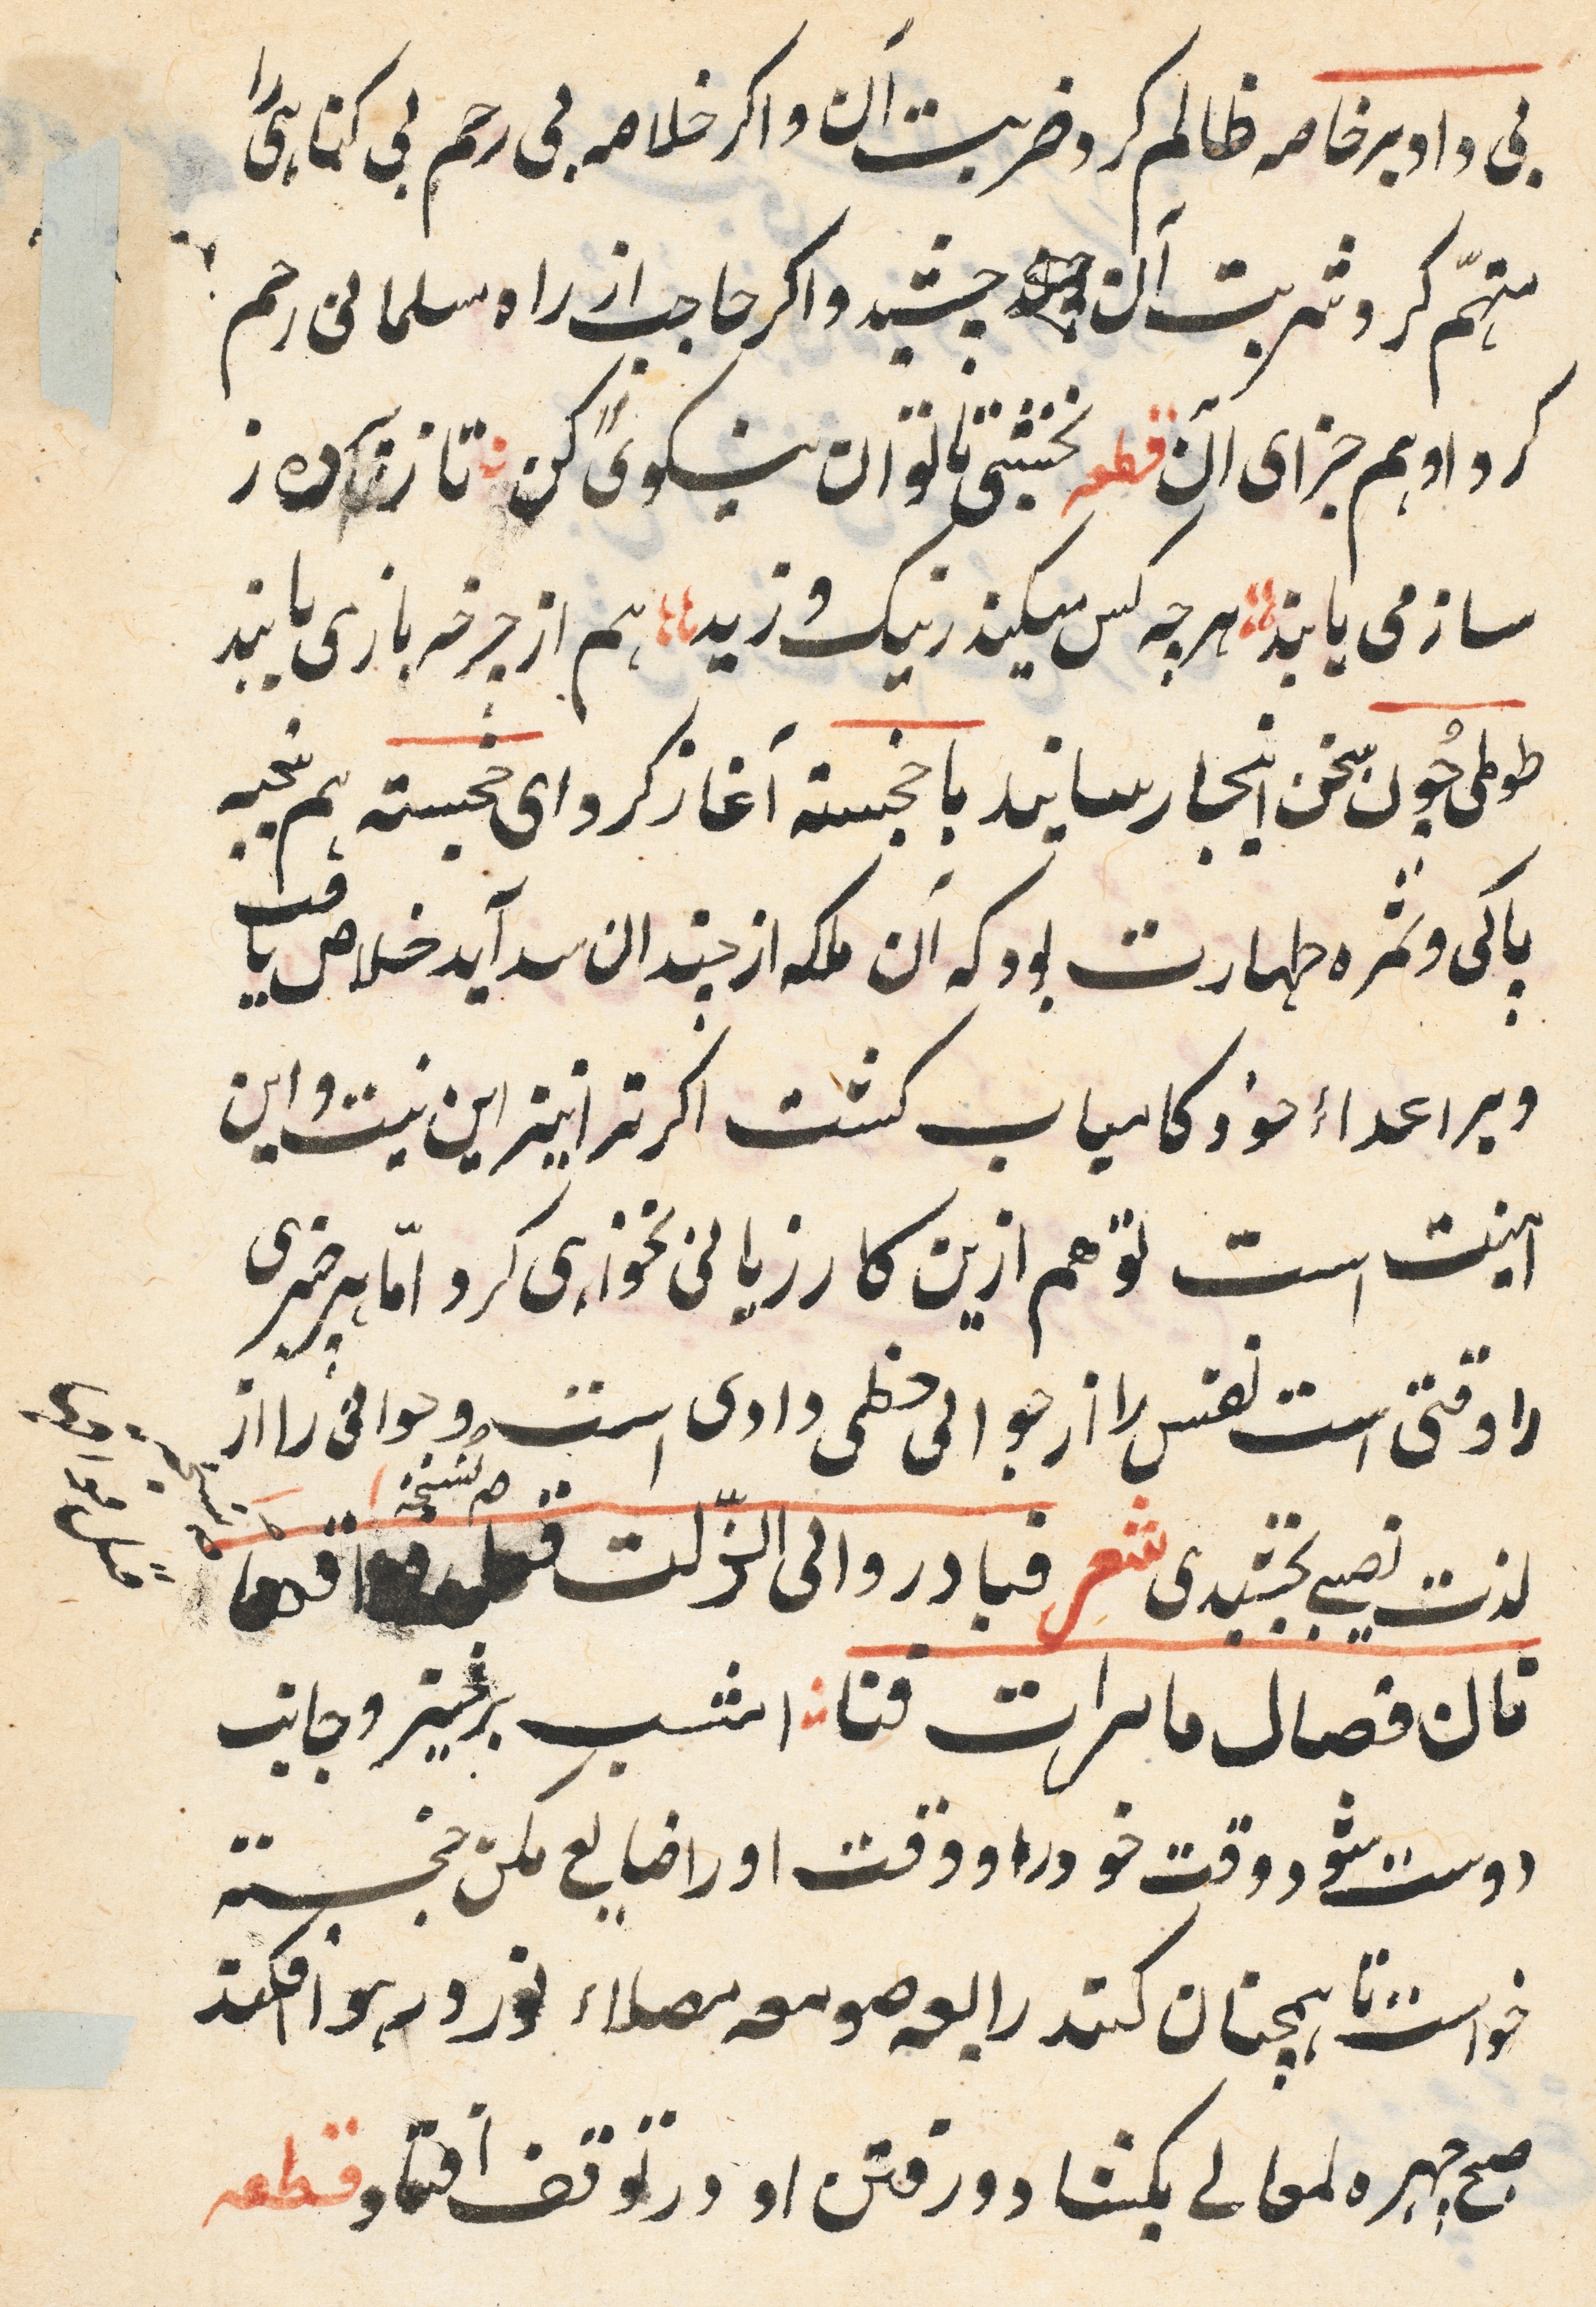 بی داد بر خاصه ظالم کرد ضربت آن و اکر خلاصه بی رحم بی کناهی را
متهّم کرد شربت آن چشید و اکر حاجب از راه مسلمانی رحم
کرد او هم جزای آن قطعه نخشبی تا توان نیکوی کن تا ز
ساز می یابند هرچه کس میکند ز نیک و ز بد هم از چرخه بازی یابند
طوطی چون سخن اینجا رسانید با خجسته آغاز کرد ای خجسته هم نتیجه
پاکی و ثمره طهارت بود که آن ملکه از چندان سدآید خلاص یافت
و بر اعداء خود کامیاب کشت اکر ترا نیز این نیت و این
امنیت است تو هم ازین کار زیانی نخواهی کرد امّا هر چیزی
را وقتی است نفس را از جوانی حظی دادی است و جوانی را از
لذت نصیبی بخشیدی شعر فبادر والی الزّلت
قال فصال ما برات فتا امشب برخیز و جانب
دوست شو و وقت خود را و وقت او را ضایع مکن خجسته
خواست تا همچنان کند رابعه صومعه مصلاء نور در هوا افکند
صبح چهره لمعالی بکشاد و رفتن او در توقف افتاد قطعه